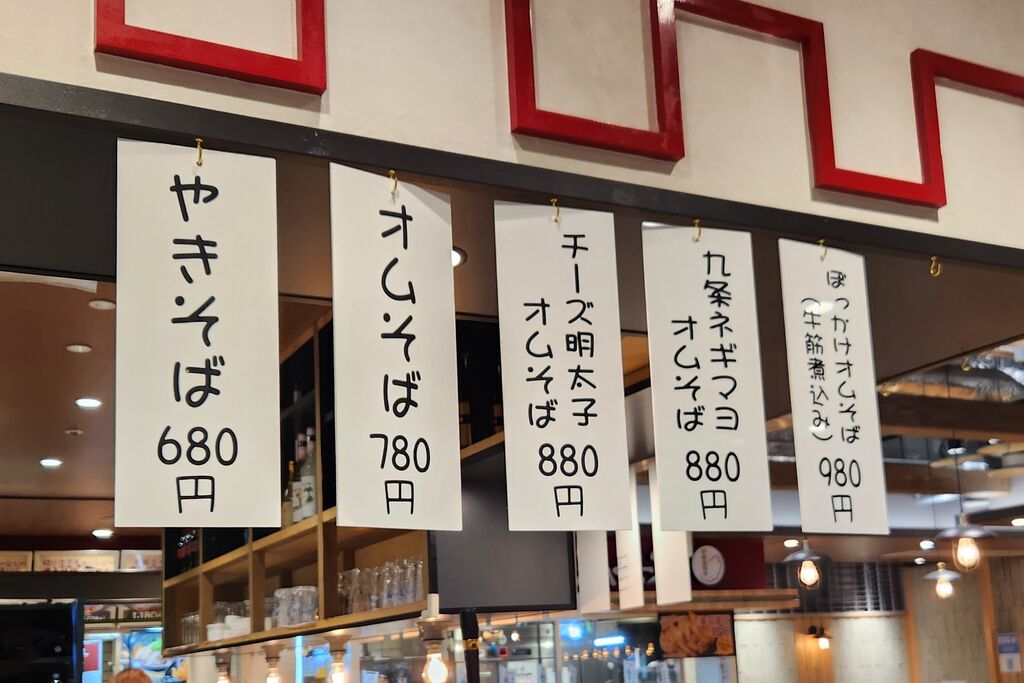 やきそば
680
円
オムそば
780
円
チーズ明太子
オムそば
880
円
九条ネギマヨ
オムそば
880
円
ぼっかけオムそば
(牛筋煮込み)
980
円
1,180